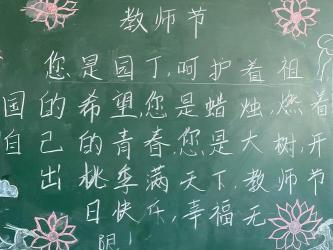 教师节
您是园丁,呵护着祖
国的希望,您是蜡烛,燃着
自己的青春,您是大树,开
出桃李满天下,教师节
日快乐,幸福无
限!